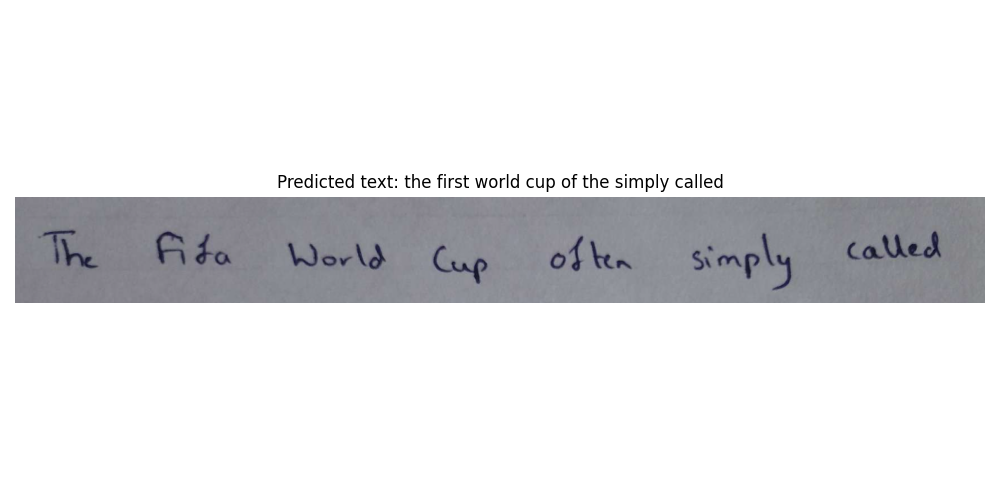 Predicted text: the first world cup of the simply called
The Fifa World Cup often simply called